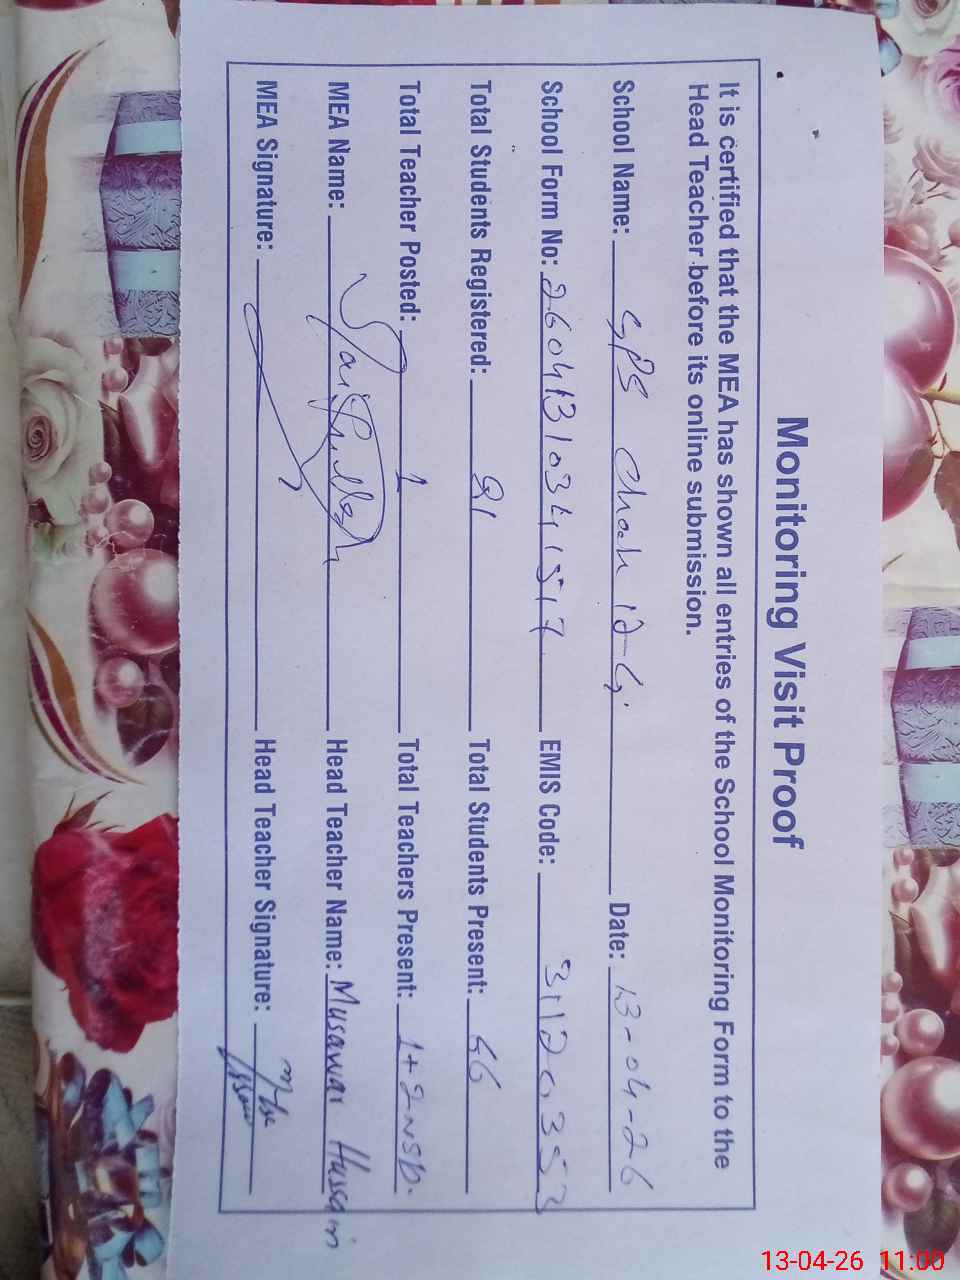 Monitoring Visit Proof
It is certified that the MEA has shown all entries of the School Monitoring Form to the
Head Teacher before its online submission.
School Name: GPS Chak 12-G. Date: 13-04-26
School Form No: 26041310341517 EMIS Code:
Total Students Registered: 81 Total Students Present: 66
Total Teacher Posted: 1 Total Teachers Present: 1+2-NSB.
MEA Name: Saif Head Teacher Name: Musawar Hussain
MEA Signature: Head Teacher Signature:
13-04-26 11:00